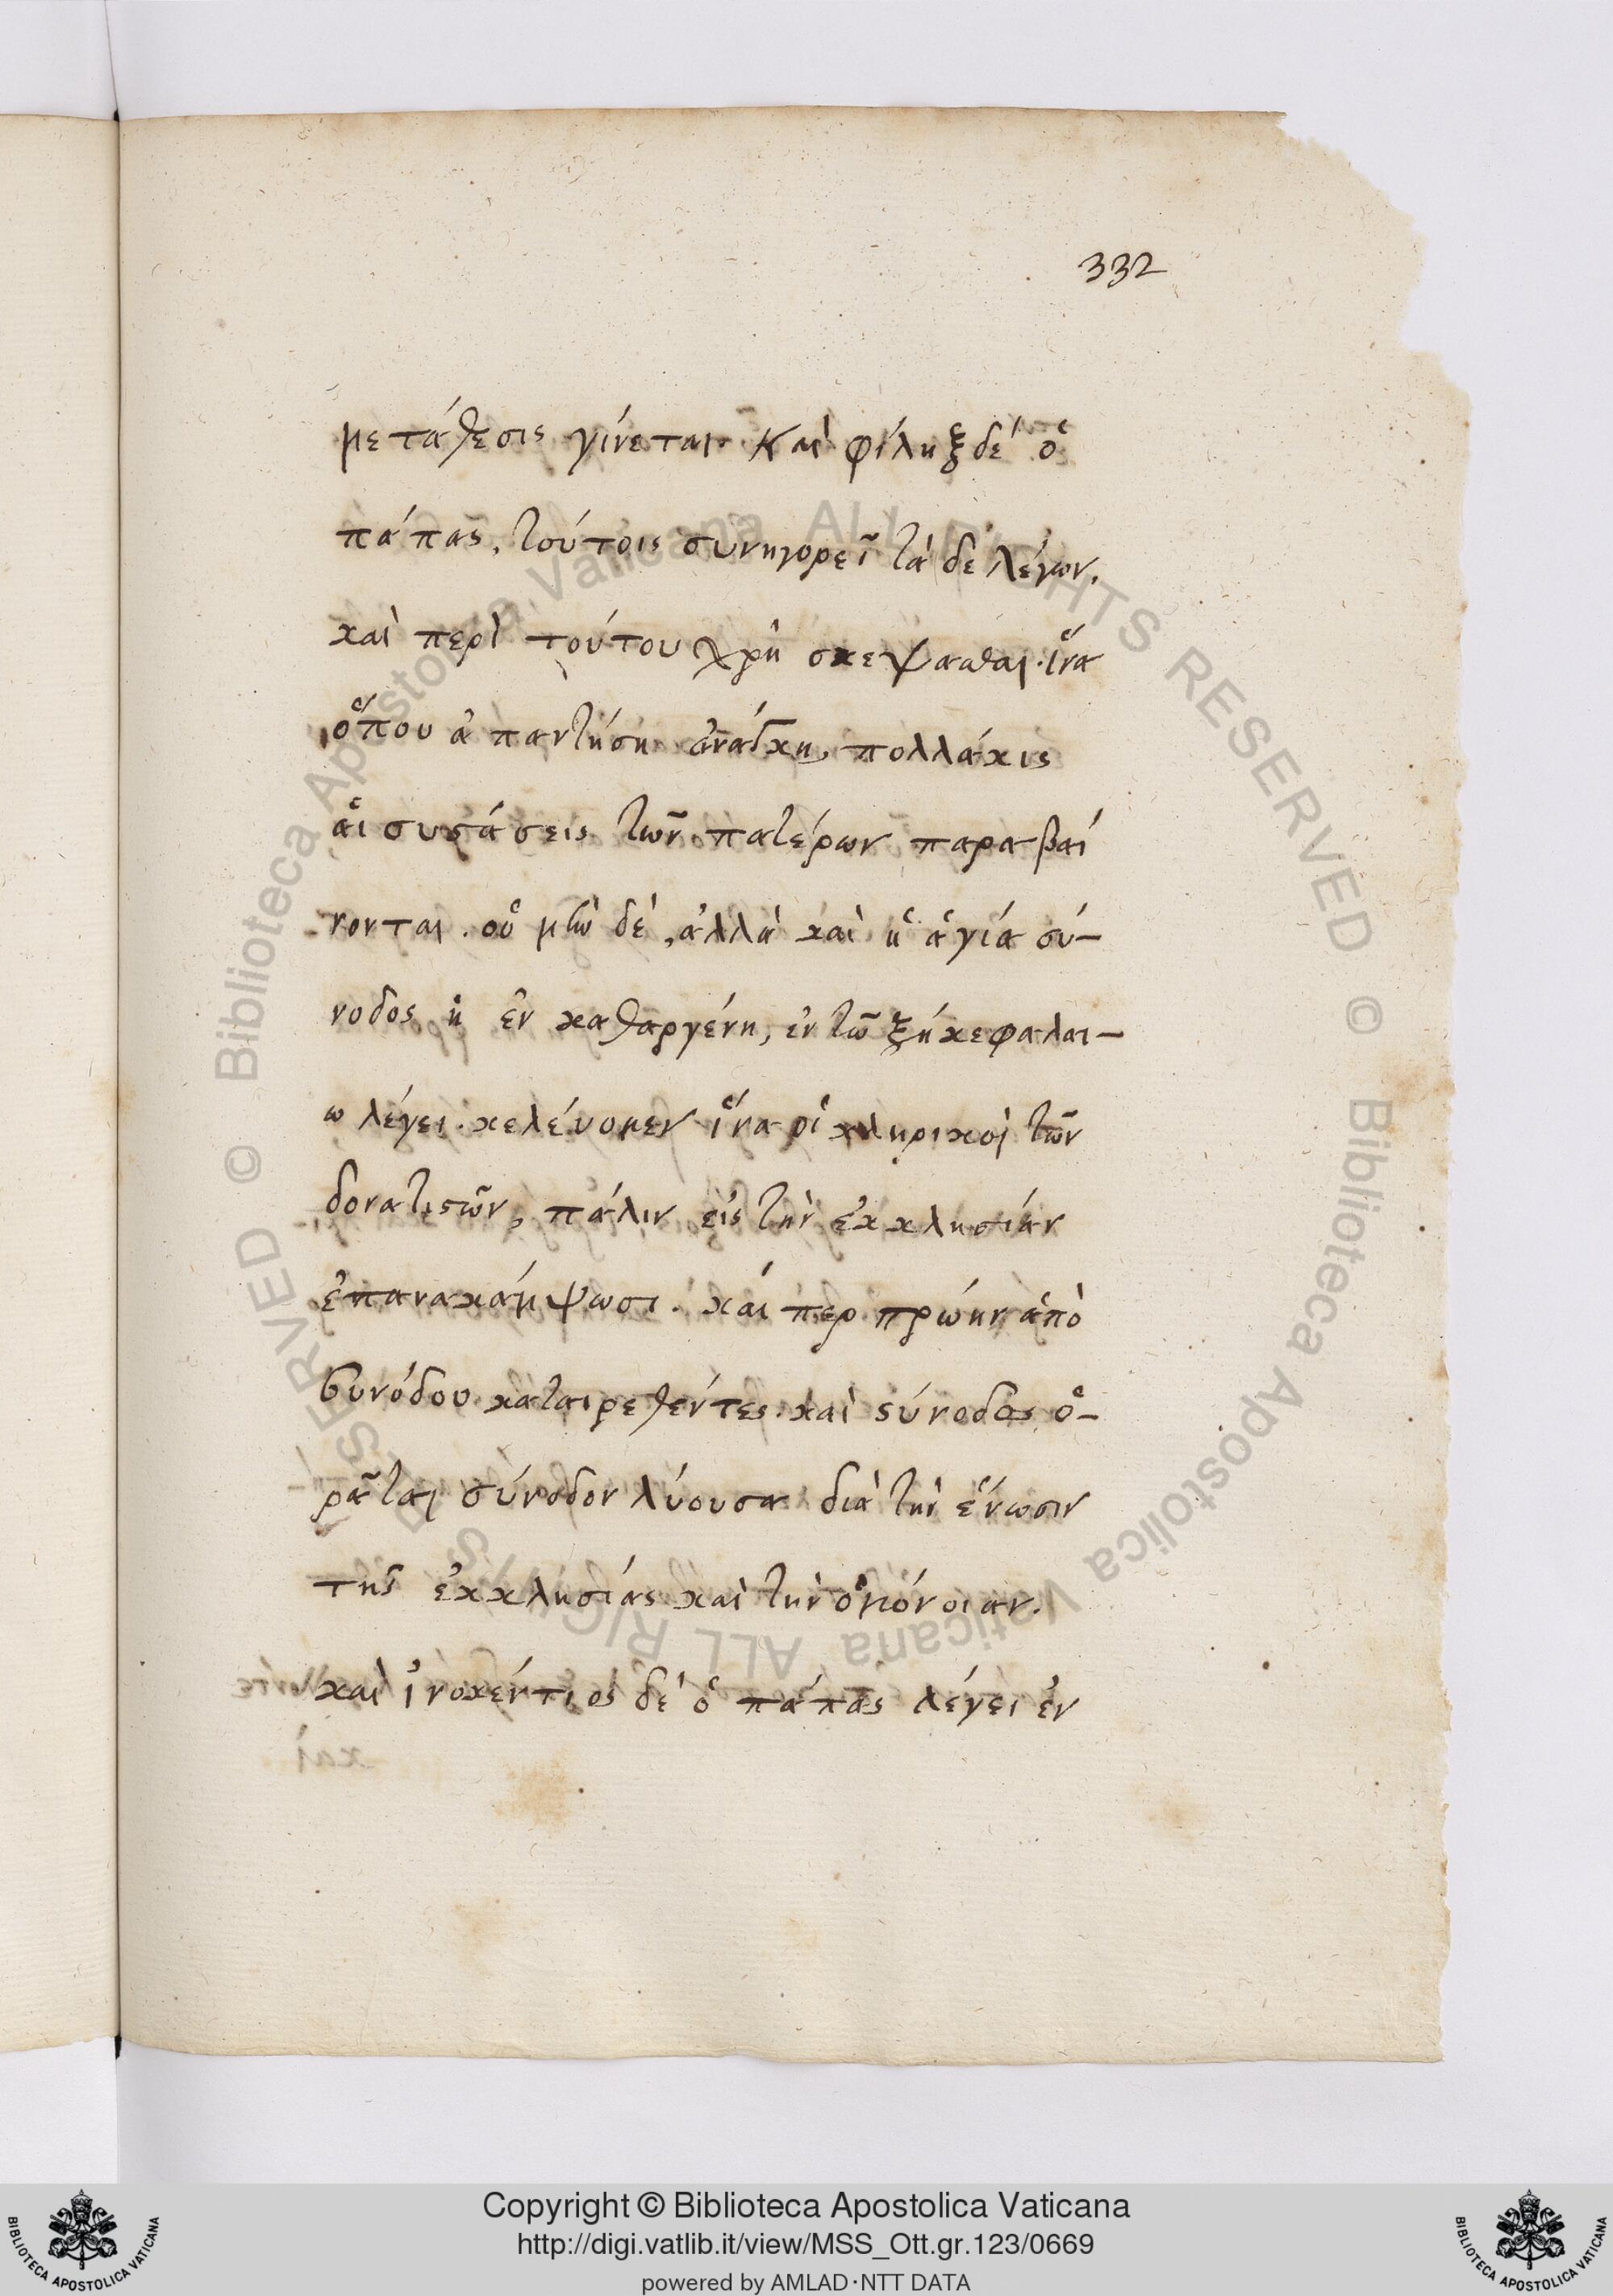 332
μετάθεσις γίνεται. Καὶ φίληξ δέ ὁ
πάπας, τούτοις συνηγορεῖ τὰ δε λέγων.
καὶ περὶ τούτου χρὴ σκεψασθαι. ἵνα
ὅπου ἀπαντήση ἀνάγκη, πολλάκις
αἱ συστάσεις τῶν πατέρων παραβαί
νονται. οὐ μὴν δὲ, ἀλλὰ καὶ ἡ ἁγία σύ-
νοδος ἡ ἐν καθαργένη, ἐν τῶ ξή κεφαλαι-
ω λέγει. κελέυομεν ἵνα οἱ κληρικοὶ τῶν
δονατιστῶν, πάλιν εἰς τὴν ἐκκλησιάν
ἐπανακάμψωσι. κάι περ πρώην ἀπὸ
συνόδου καταιρεθέντες. καὶ σύνοδος ὁ-
ρᾶται σύνοδον λύουσα διὰ τὴν ἕνωσιν
τῆς ἐκκλησίας καὶ τὴν ὁμόνοιαν.
καὶ ἰνοκέντιος δὲ ὁ πάπας λέγει ἐν
© Biblioteca Apostolica Vaticana ALL RIGHTS RESERVED © Biblioteca Apostolica Vaticana ALL RIGHTS RESERVED
Copyright © Biblioteca Apostolica Vaticana
http://digi.vatlib.it/view/MSS_Ott.gr.123/0669
powered by AMLAD·NTT DATA
BIBLIOTECA APOSTOLICA VATICANA
BIBLIOTECA APOSTOLICA VATICANA